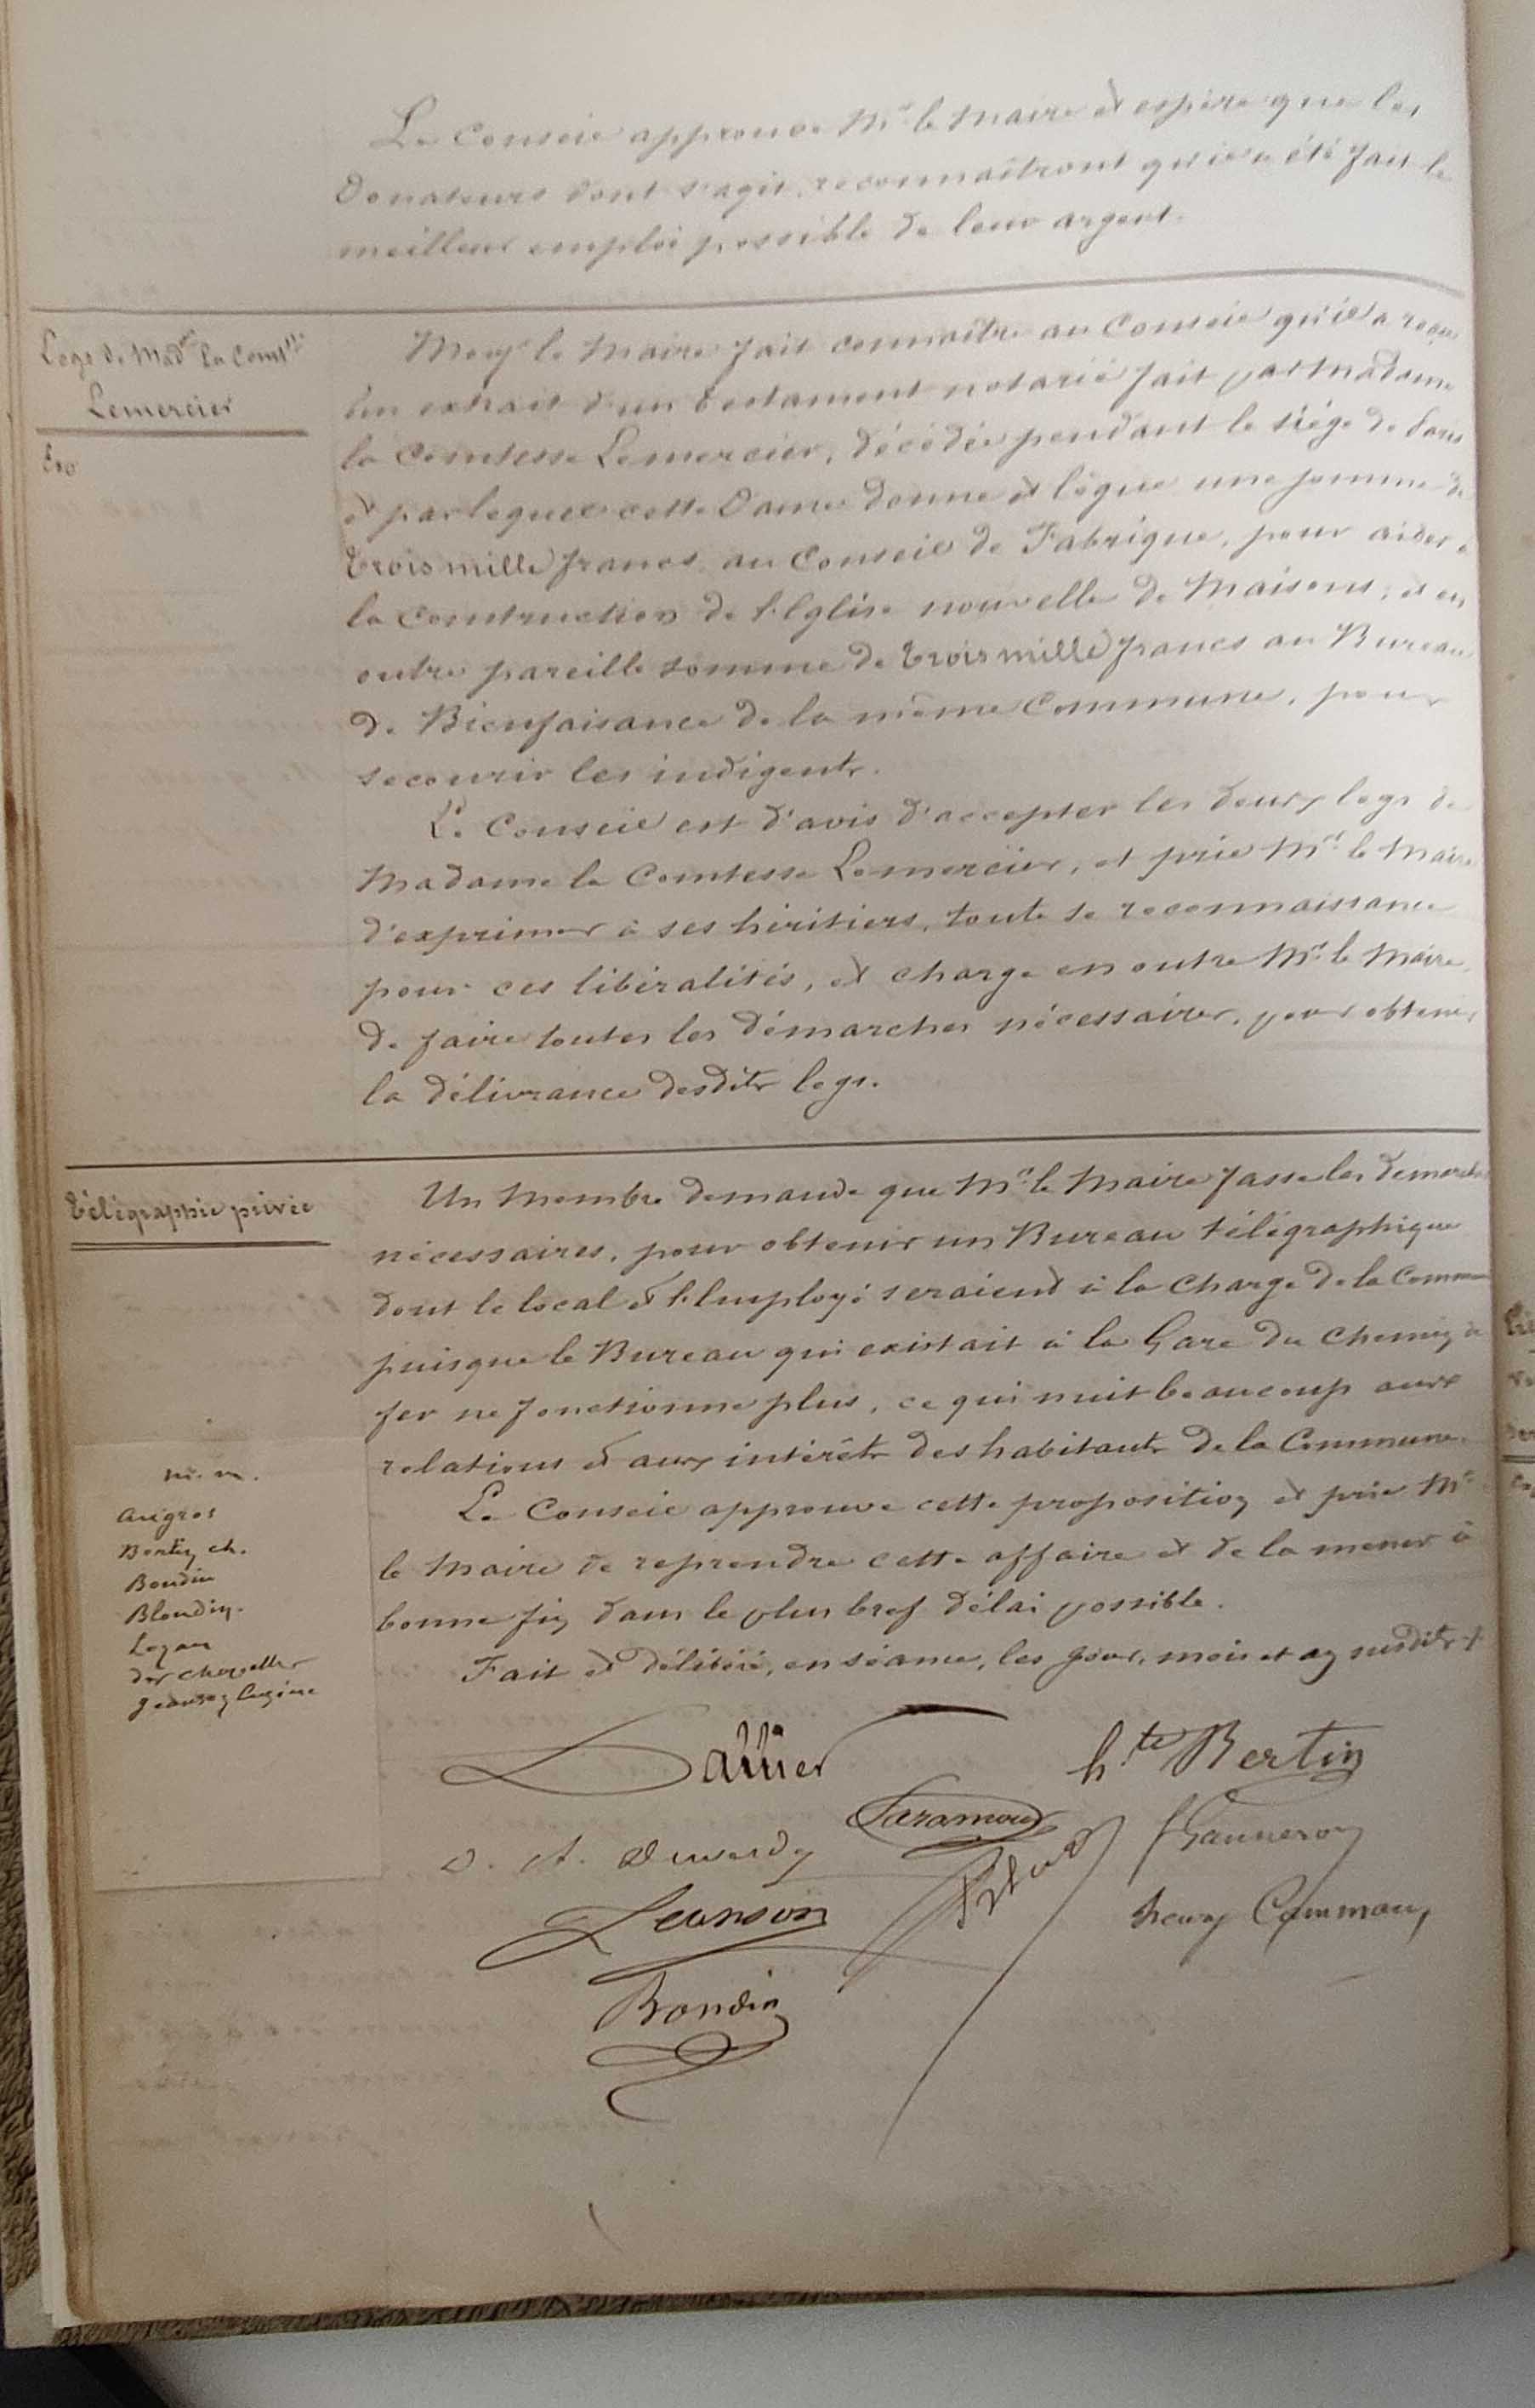 Le Conseil approuve Mr. le Maire et espère que les
Donateurs dont s'agit, reconnaîtront qu'il a été fait le
meilleur emploi possible de leur argent.
Legs de Madme la Comtsse
Lemercier
Exo
Monsr le Maire fait connaître au Conseil qu'il a reçu
un extrait d'un testament notarié fait par Madame
la Comtesse Lemercier, décédée pendant le siége de Paris
et par lequel cette Dame donne et lègue une somme de
trois mille francs au Conseil de Fabrique, pour aider à
la construction de l'Eglise nouvelle de Maisons; et en
outre pareille somme de trois mille francs au Bureau
de Bienfaisance de la même Commune, pour
secourir les indigents.
Le Conseil est d'avis d'accepter les deux legs de
Madame la Comtesse Lemercier, et prie Mr. le Maire
d'exprimer à ses héritiers, toute sa reconnaissance
pour ces libéralités, et charge en outre Mr. le Maire,
de faire toutes les démarches nécessaires, pour obtenir
la délivrance desdits legs.
Télégraphie privée
Un Membre demande que Mr. le Maire fasse les démarches
nécessaires, pour obtenir un Bureau télégraphique
dont le local et l'Employé seraient à la charge de la Commune
puisque le Bureau qui existait à la Gare du Chemin de
fer ne fonctionne plus, ce qui nuit beaucoup aux
relations et aux intérêts des habitants de la Commune.
Le Conseil approuve cette proposition et prie Mr.
le Maire de reprendre cette affaire et de la mener à
bonne fin dans le plus bref délai possible.
Fait et délibéré, en séance, les jour, mois et an susdits
M. M.
Bertin ch.
Boudin
Blondin.
des chapelles
Jeanson Eugène
hte Bertin
Jeanson
Boudin
henry